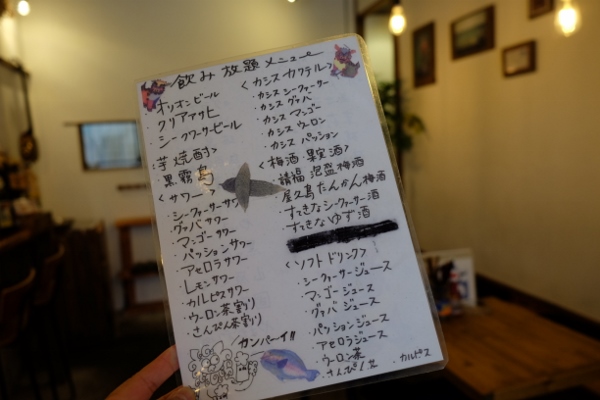 飲み放題メニュー
・オリオンビール
・クリアアサヒ
・シークワーサービール
<芋焼酎>
・黒霧島
<サワー>
・シークァーサーサワー
・グァバサワー
・マンゴーサワー
・パッションサワー
・アセロラサワー
・レモンサワー
・カルピスサワー
・ウーロン茶割り
・さんぴん茶割り
カンパーイ!!
<カシスカクテル>
・カシスシークァーサー
・カシスグァバ
・カシスマンゴー
・カシスウーロン
・カシスパッション
<梅酒・果実酒>
・請福 泡盛梅酒
・屋久島たんかん梅酒
・すてきなシークァーサー酒
・すてきなゆず酒
<ソフトドリンク>
・シークァーサージュース
・マンゴージュース
・グァバジュース
・パッションジュース
・アセロラジュース
・ウーロン茶
・さんぴん茶
・カルピス